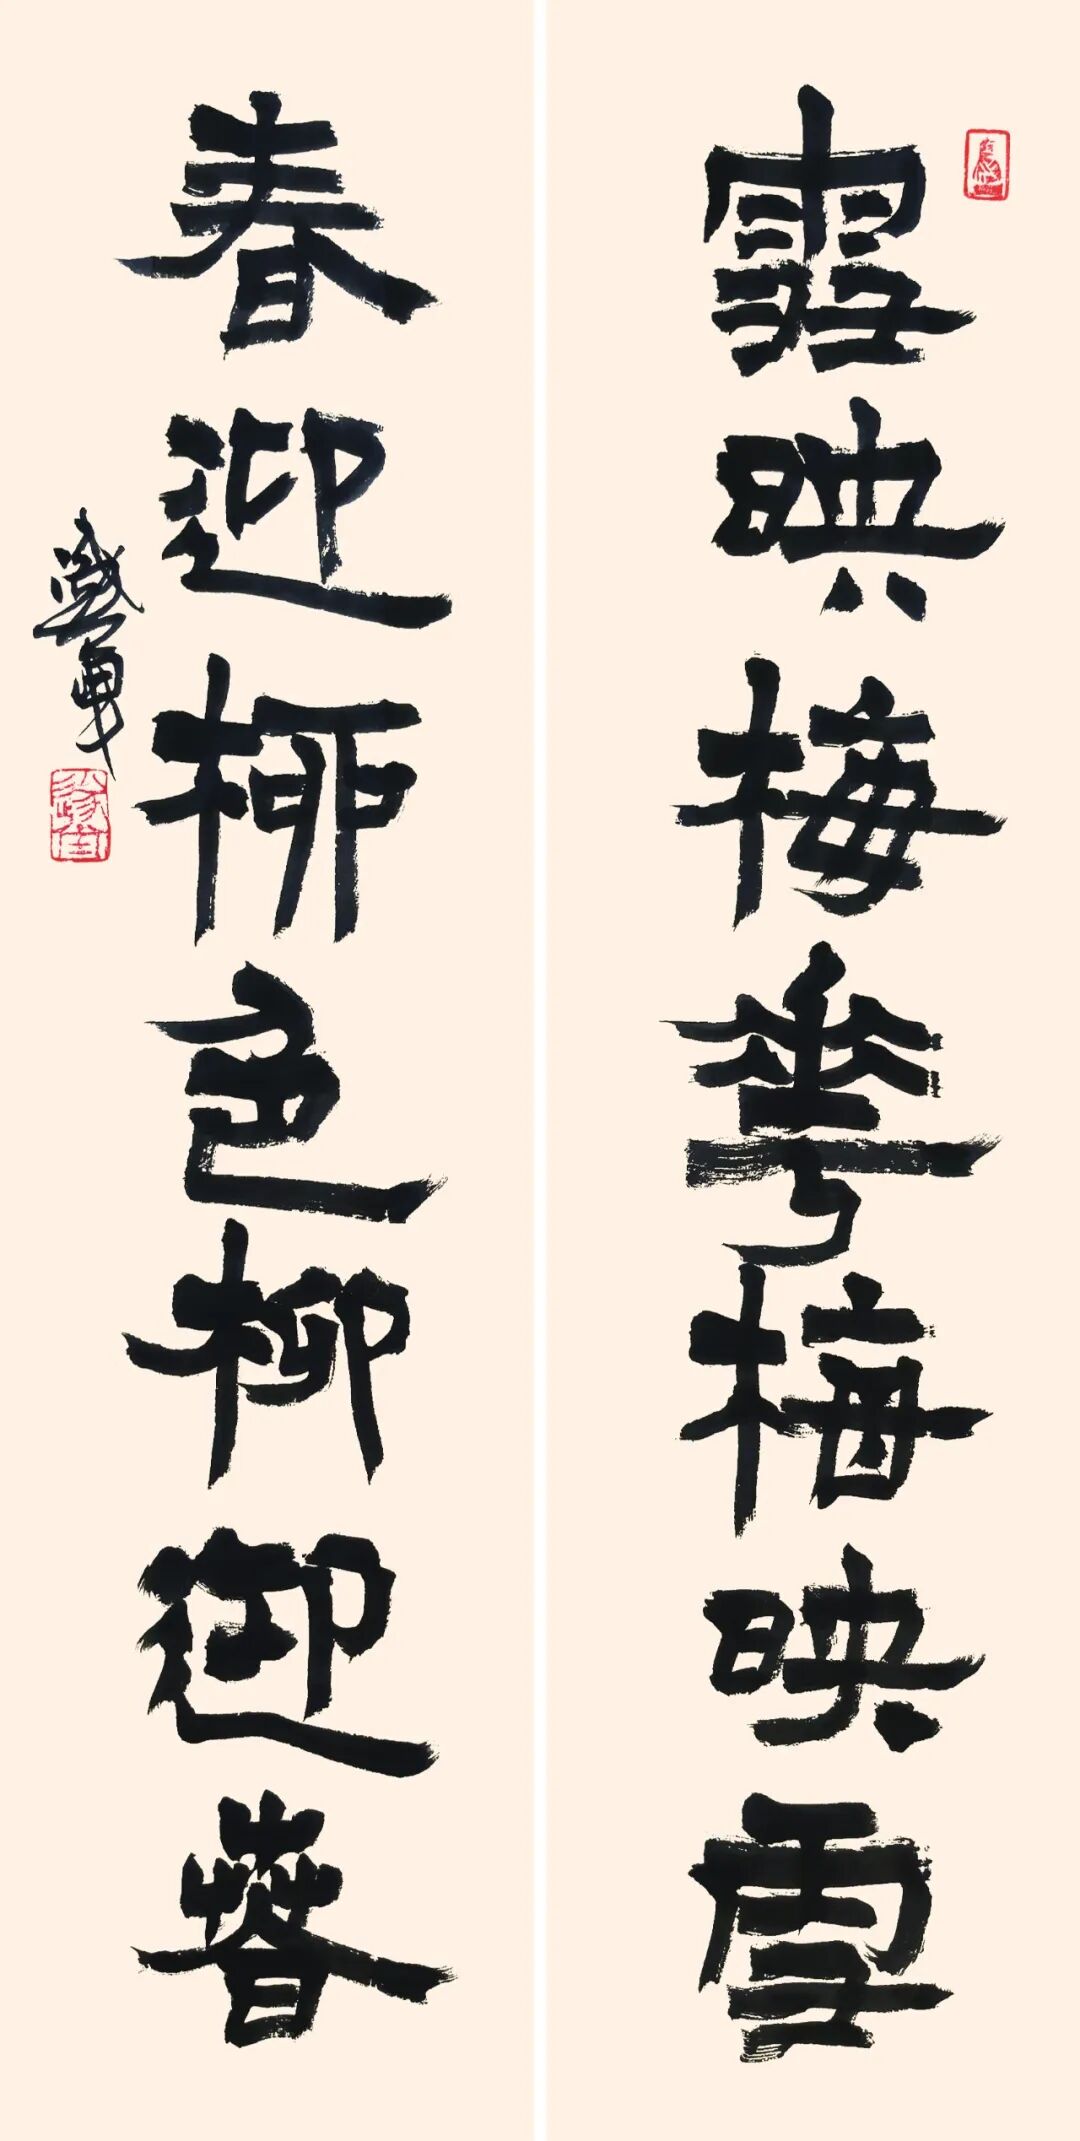 雪映梅華梅映雪
春迎柳色柳迎春